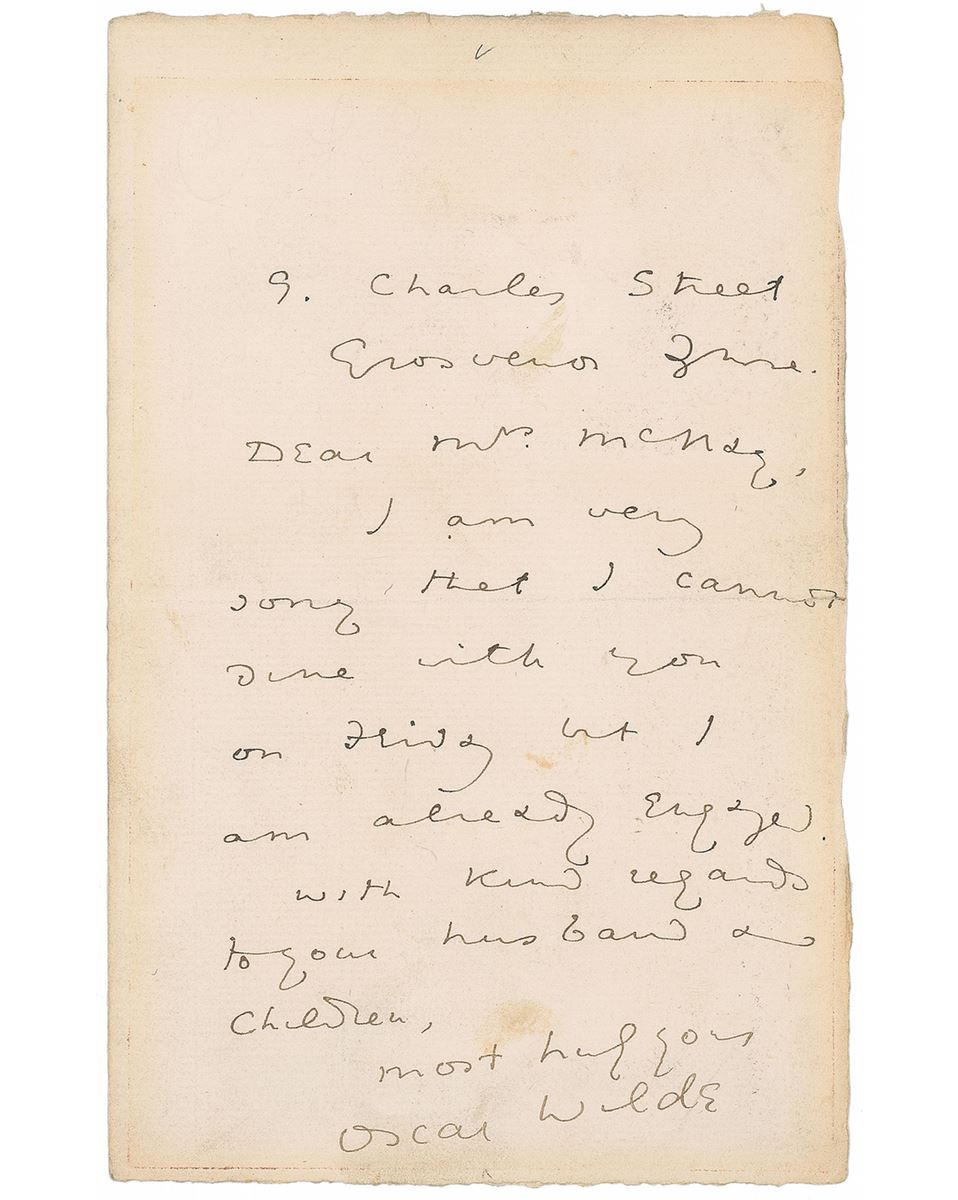 9. Charles Street
Grosvenor Square.
Dear Mrs. McKay,
I am very
sorry that I cannot
dine with you
on Friday but I
am already engaged.
with kind regards
to your husband and
children,
most truly yours
Oscar Wilde